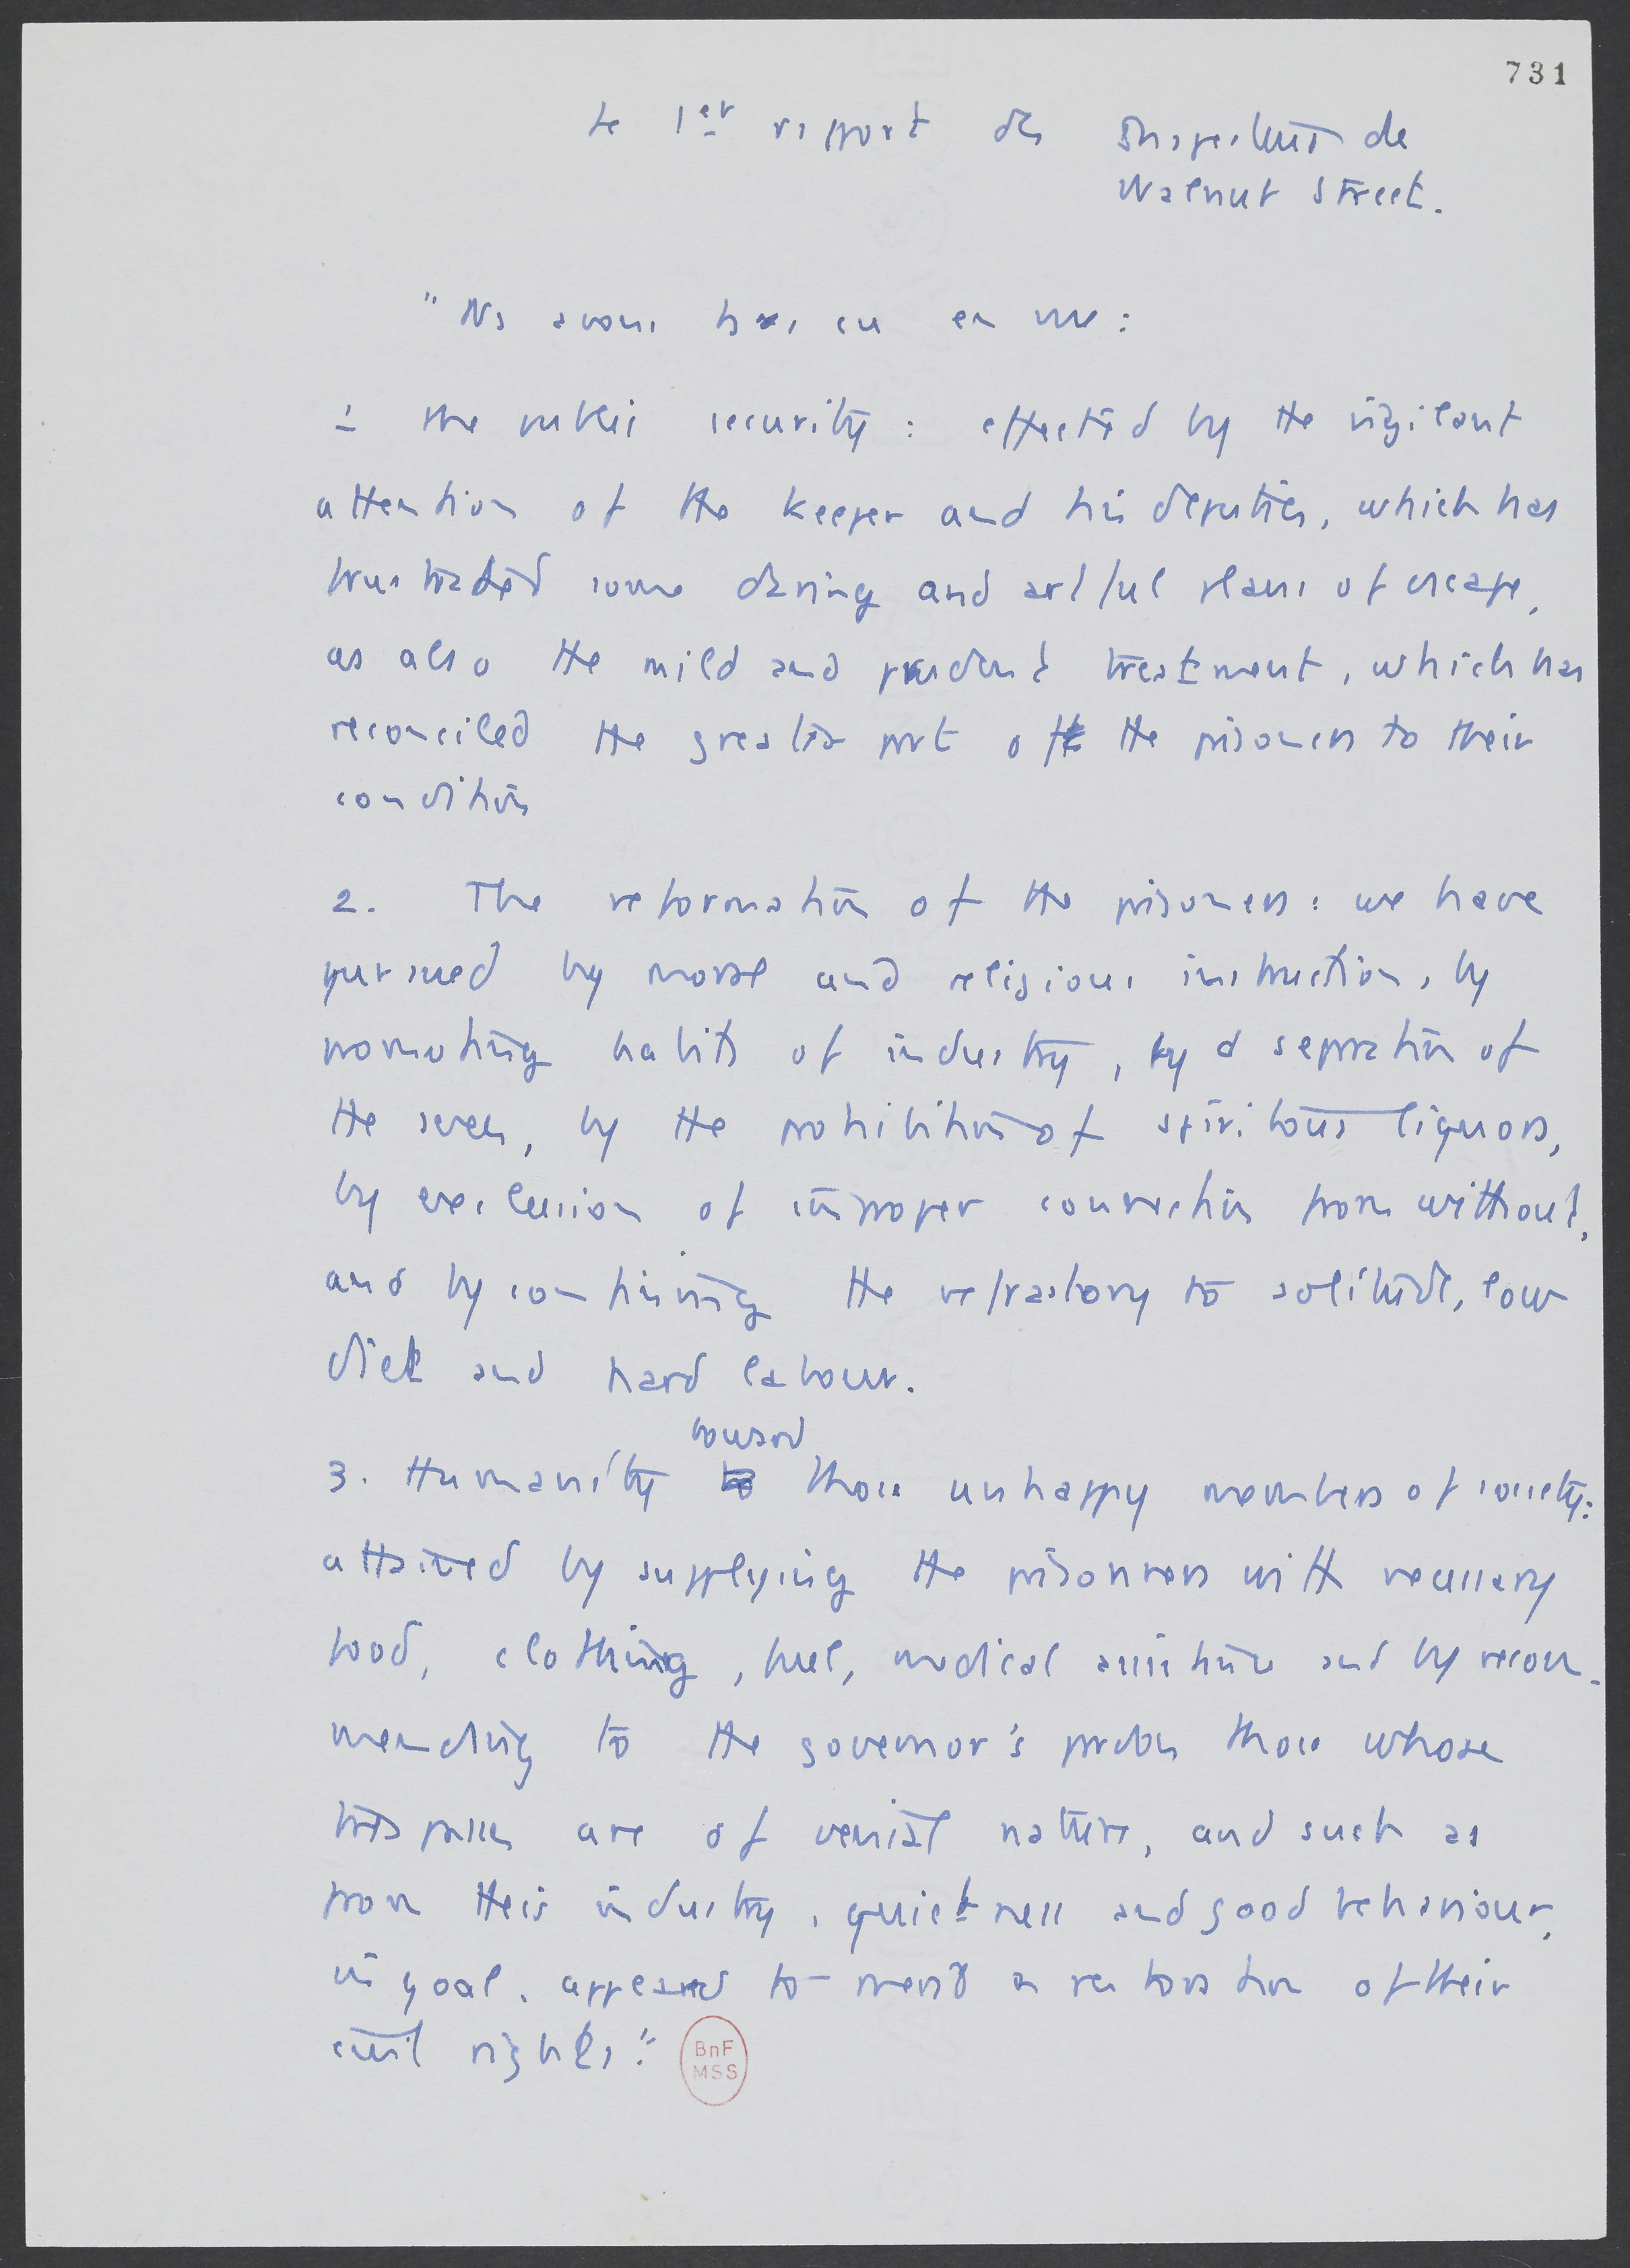 731
Le 1er rapport des Inspecteurs de
Walnut Street.
"Ns avons eu en vue:
1 the public security: effected by the vigilant
attention of the keeper and his deputies, which has
frustrated some daring and artful plans of escape,
as also the mild and prudent treatment, which has
reconciled the greater part of the prisoners to their
condition
2. The reformation of the prisoners: we have
pursued by moral and religious instruction, by
promoting habits of industry, by a separation of
the sexes, by the prohibition of spiritous liquors,
by exclusion of improper connection from without,
and by confining the refractory to solitude, low
diet and hard labour.
toward
3. Humanity those unhappy members of society:
attained by supplying the prisonners with necessary
food, clothing, fuel, medical assistance and by recom-
mending to the governor's pardon those whose
trespasses are of venial nature, and such as
from their industry, quietness and good behaviour,
in goal, appeared to merit a restoration of their
civil rights."
BnF
MSS